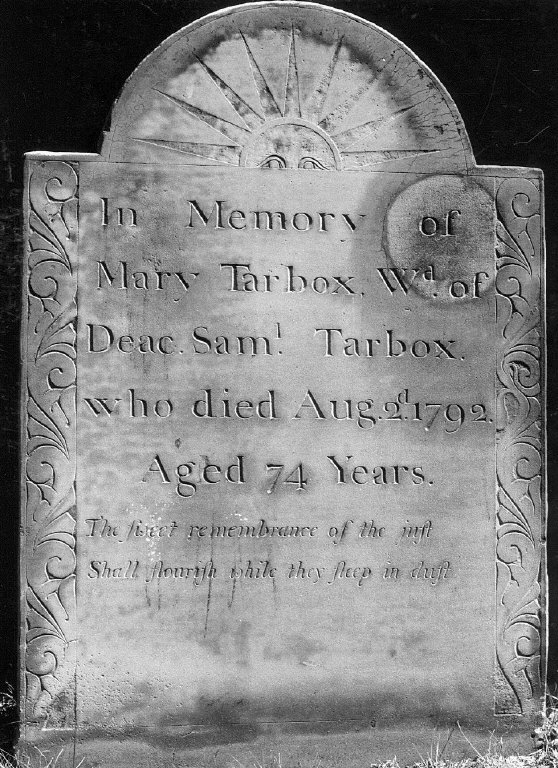 In Memory of
Mary Tarbox, Wᵈ. of
Deac. Samˡ. Tarbox.
who died Aug. 2ᵈ. 1792.
Aged 74 Years.
The ſweet remembrance of the juſt
Shall flouriſh while they ſleep in duſt